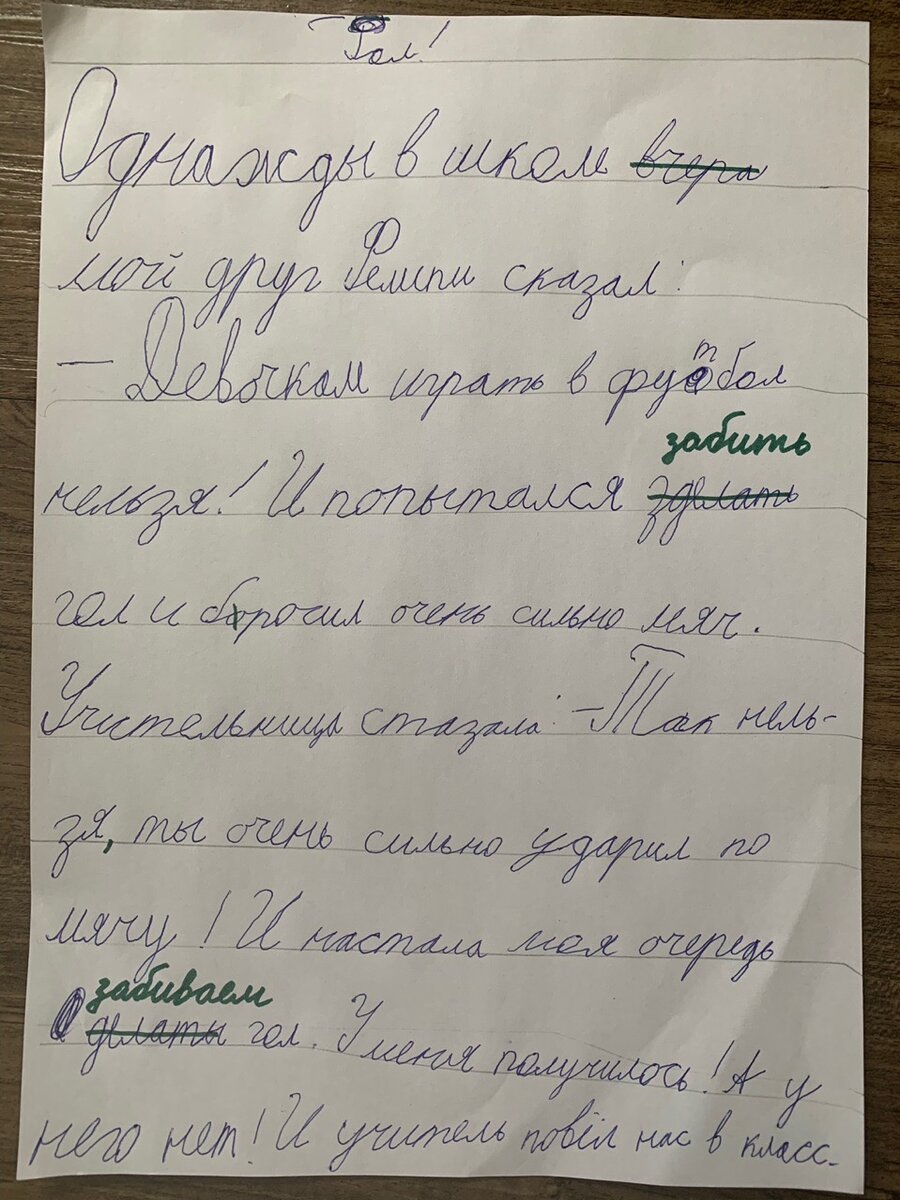 Гол!
Однажды в школе вчера
мой друг Фелипи сказал:
— Девочкам играть в футбол
забить
нельзя! И попытался зделать
гол и бросил очень сильно мяч.
Учительница стазала: -Так нель-
зя, ты очень сильно ударил по
мячу! И настала моя очередь
забиваем
делаты гол. У меня получилось! А у
него нет! И учитель повёл нас в класс.